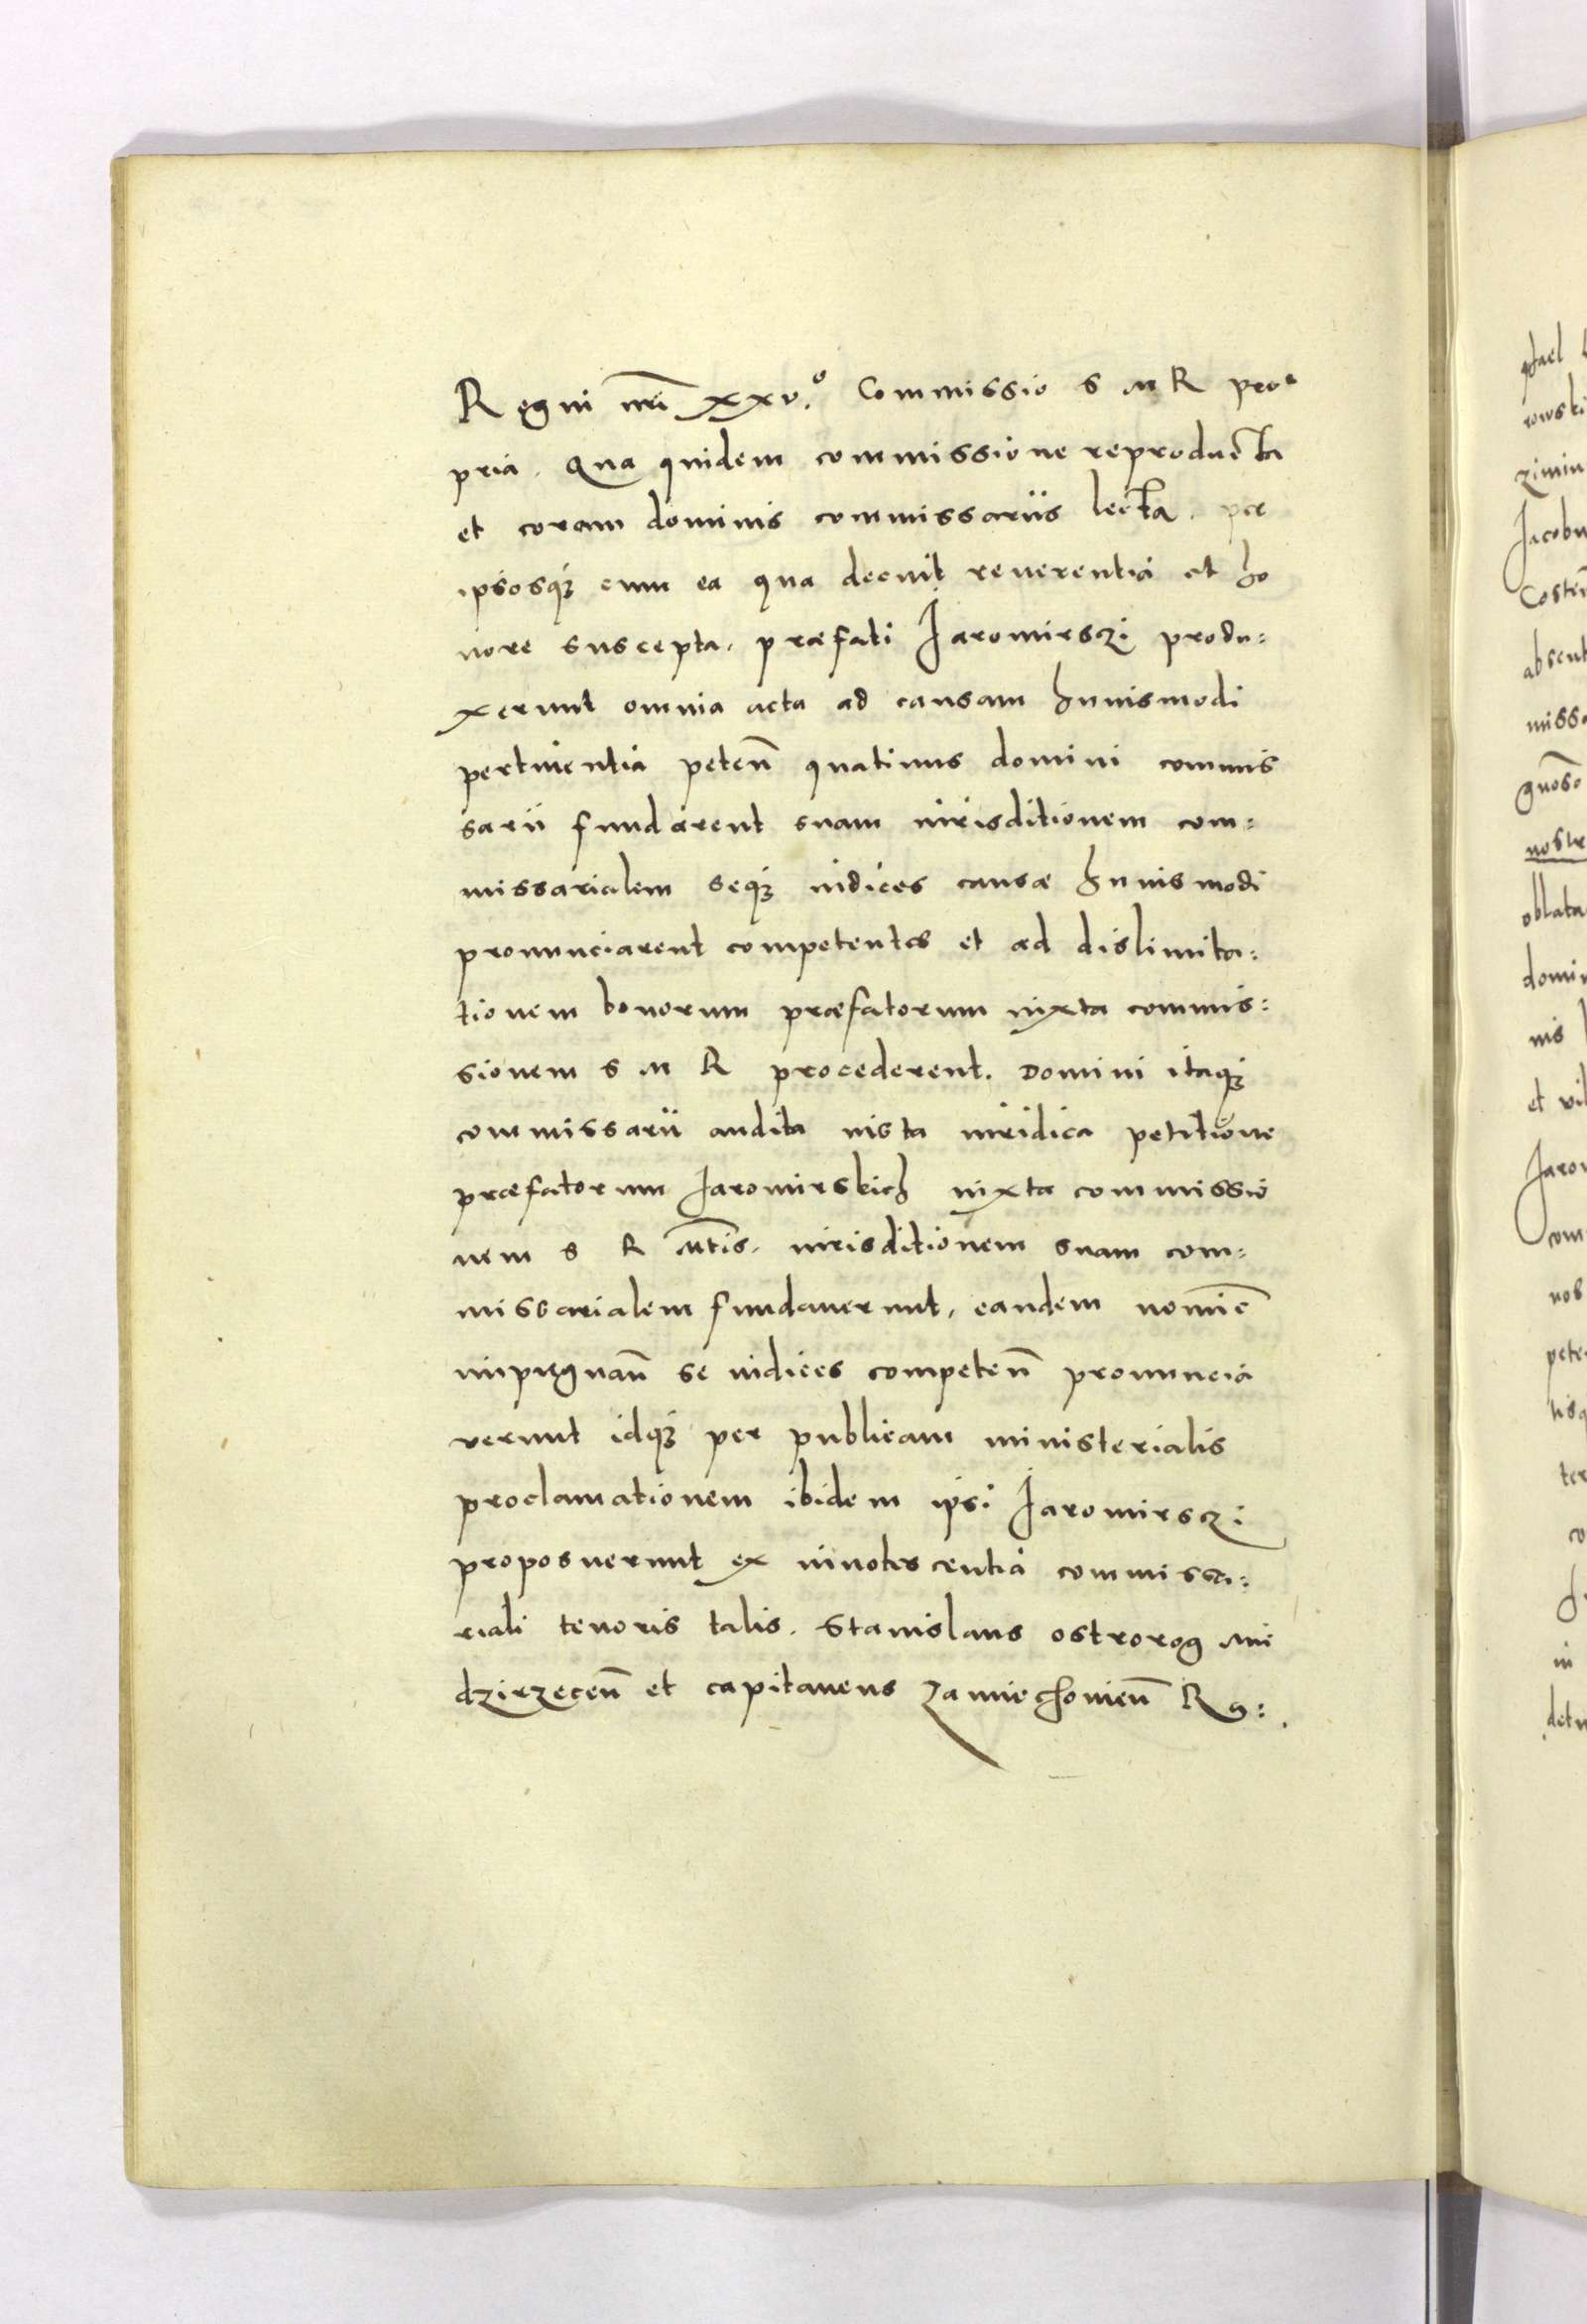 Regni nr̃i xxv.º Commissio S M R pro=
pria. Qua quidem commissione reproducta
et coram dominis commissariis lecta. per
ipsosq̃ cum ea qua decuit reuerentia et ho
nore suscepta. præfati Jaromirsczi produ:
xerunt omnia acta ad causam huiusmodi
pertinentia peteñ quatinus domini commis
sarii fundarent suam iurisditionem com:
missarialem seq̃ iudices causæ huiusmodi
pronunciarent competentes et ad dislimita:
tionem bonorum præfatorum iuxta commis:
sionem S M R procederent. Domini itaq̃
commissarii audita iusta iuridica petitione
præfatorum Jaromirskich iuxta commissio
nem S R Mt̃is. iurisditionem suam com:
missarialem fundauerunt, eandem nomiẽ
impugnañ se iudices competeñ pronuncia
uerunt idq̃ per publicam ministerialis
proclamationem ibidem ipsi Jaromirsczi
proposuerunt ex innotescentia commissa:
riali tenoris talis. Stanislaus ostrorog Mi
dzirzeceñ et capitaneus Zamiechovieñ Rg:
ptael
rowski
zimin
Jacobu
absent
misso
gnõso
nostr
oblata
domin
nis
et vil
Jarom
com
nos
pete
tisq
ter
co
in
detu